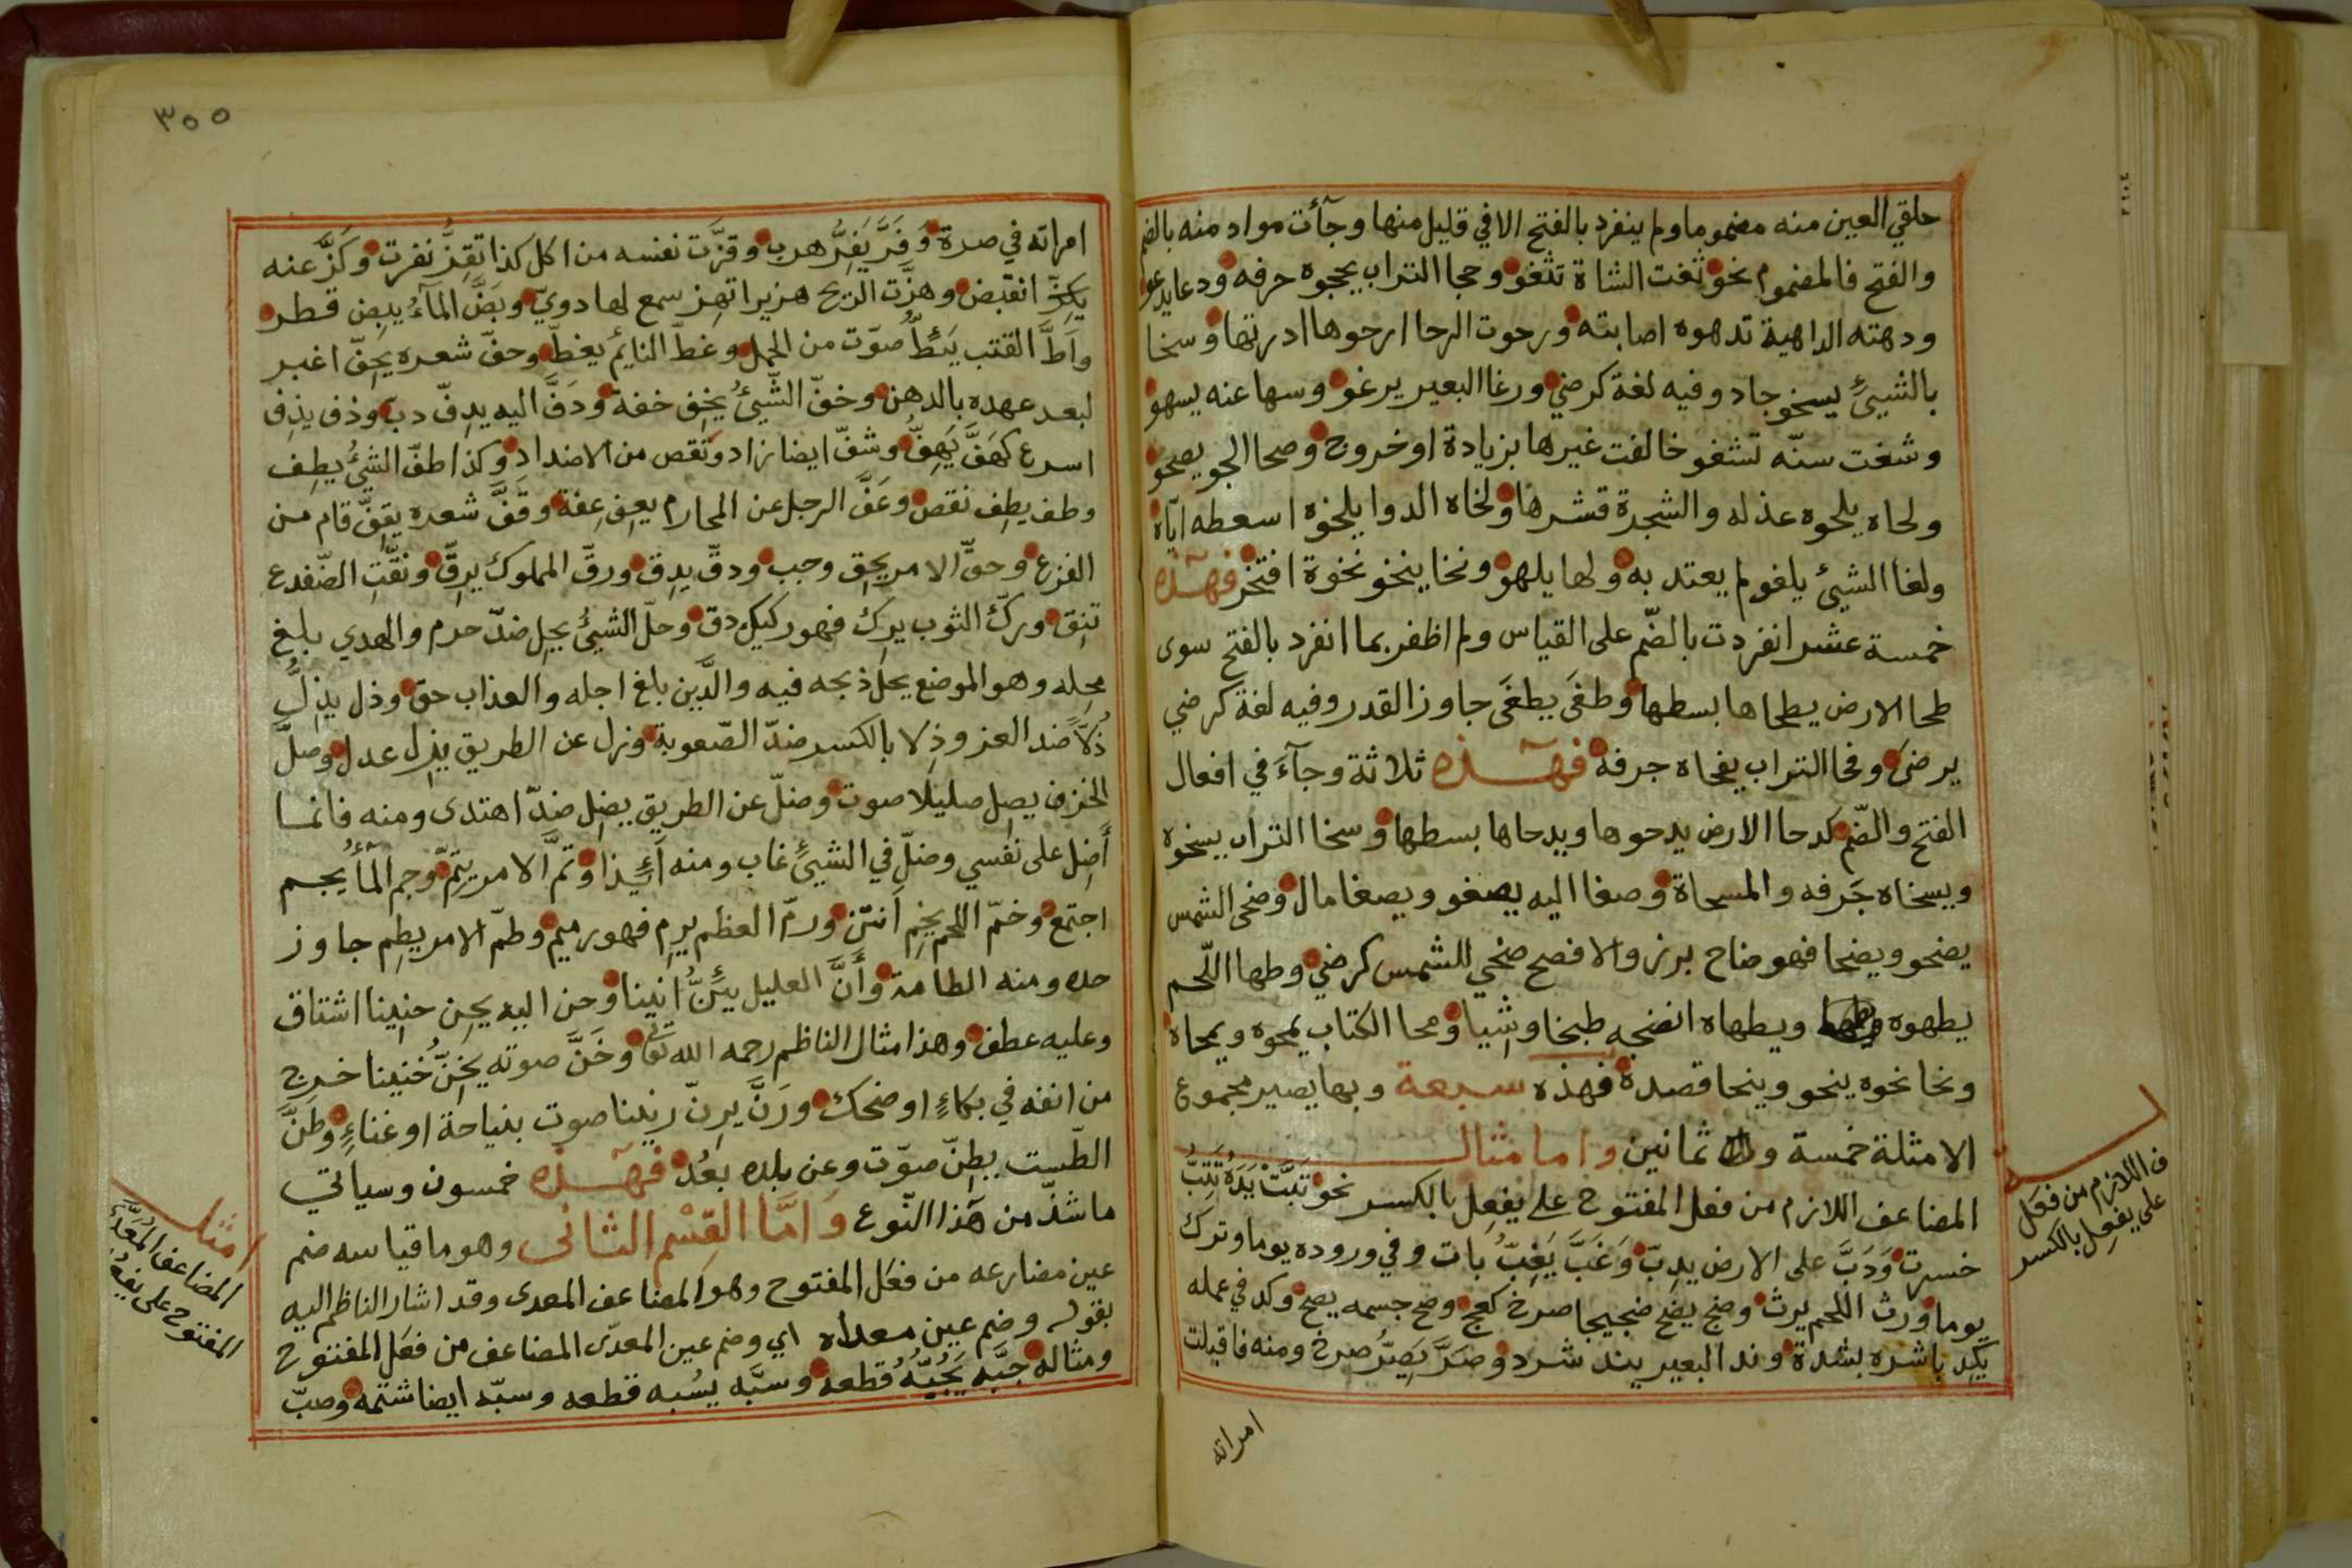 حلقي العين منه مضموما ولم ينفرد بالفتح الا في قليل منها وجآءت مواد منه بالضم
والفتح فالمضموم نحو ثغت الشاة تثغو وحجا التراب يحجوه جرفه ودعا يدعو
ودهته الداهية تدهوه اصابته ورحوت الرحا ارحوها ادرتها وسخا
بالشيئ يسخو جاد وفيه لغة كرضي ورغا البعير يرغو وسها عنه يسهو
وشغت سنّه تشغو خالفت غيرها بزيادة او خروج وصحا الجو يصحو
ولحاه يلحوه عذله والشجرة قشرها ولخاه الدوا يلخوه اسعطه اياه
ولغا الشيئ يلغو لم يعتد به ولها يلهو ونخا ينخو نخوة افتخر فهـذه
خمسة عشر انفردت بالضّم على القياس ولم اظفر بما انفرد بالفتح سوى
طحا الارض يطحاها بسطها وطغَى يطغَى جاوز القدر وفيه لغة كرضي
يرضى وفحا التراب يفحاه جرفه فهـذه ثلاثة وجآءَ في افعال
الفتح والضّم كدحا الارض يدحوها ويدحاها بسطها وسخا التراب يسخوه
ويسخاه جَرفه والمسحاة وصغا اليه يصغو ويصغا مال وضحى الشمس
يضحو ويضحا فهو ضاح برز والافصح ضحي للشمس كرضي وطها اللّحم
يطهوه ويطهاه انضجه طبخا وشيا ومحا الكتاب يمحوه ويمحاه
ونحا نحوه ينحو وينحا قصده فهذه سبعة وبها يصير مجموع
الامثلة خمسة و ثمانين واما مثال
المضاعف اللازم من فعل المفتوح على يفعِل بالكسر نحو تبَّتْ يَدُه تَتِبُّ
خسرت وَدَبَّ على الارض يدِبّ وَغَبَّ يَغِبُّ بات وفي وروده يوما وترك
يوما ورث اللحم يرث وضج يضج ضجيجا صرخ كعج وصح جسمه يصح وكد في عمله
يَكِد باشره بشدة وند البعير يند شرد وصَرَّ يَصِرُّ صرخ ومنه فاقبلت
امراته
ف اللازم من فعَل
على يفعِل بالكسر
٣٥٥
امراته في صرة وَفَرَّ يَفِرُّ هرب وقزّت نفسه من اكل كذا تقِزّ نفرت وكَزَّ عنه
يكِزّ انقبض وهزّت الريح هزيزا تهِز سمع لها دويّ وبَضَّ المآءُ يبِض قطر
واَطَّ القتب يَئِطُّ صوّت من الحمل وغطّ النايم يغطّ وحفّ شعره يحِفّ اغبر
لبعد عهده بالدهن وخفّ الشّيئُ يخِف خفة ودَفَّ اليه يدِفّ دبّ وذف يذِف
اسرع كهَفَّ يَهِفُّ وشفّ ايضا زاد ونقص من الاضداد وكذا طفّ الشيئُ يطِف
وطف يطِف نقص وعَفَّ الرجل عن المحارم يعِف عِفة وقَفَّ شعره يقِفّ قام من
الفزع وحقّ الامر يحِق وجب ودقّ يدِق ورقّ المملوك يرِقّ ونقّتِ الضّفدع
تنِق وركّ الثوب يرِك فهو ركيك دق وحلّ الشيئُ يحِل ضدّ حرم والهدي بلغ
محِله وهو الموضع يحل ذبحه فيه والدَّين بلغ اجله والعذاب حق وذل يذِلُّ
ذُلّاً ضد العز وذِلا بالكسر ضدّ الصّعوبة وزل عن الطريق يزِل عدل وصلَّ
الخزف يصِل صليلا صوت وضلّ عن الطريق يضِل ضدّ اهتدى ومنه فانما
أَضِل على نفسي وضلّ في الشيئ غاب ومنه أَئِذا وتَمَّ الامر يتِمّ وجم المآءُ يجم
اجتمع وخمّ اللحم يخِم اَنتن ورمّ العظم يرِم فهو رميم وطمّ الامر يطِم جاوز
حده ومنه الطامة وأَنَّ العليل يئِنُّ انينا وحن اليه يحِن حنِينا اشتاق
وعليه عطف وهذا مثال الناظم رحمه الله تعالى وخَنَّ صوته يخِنّ خُنينا خرج
من انفه في بكاءٍ او ضحك ورَنَّ يرِنّ رنينا صوت بنياحة او غناءٍ وطَنَّ
الطّست يطِنّ صوّت وعن بلده بعُد فهـذه خمسون وسياتي
ما شذّ من هَذا النّوع وَامَّا القِسْم الثانى وهو ما قياسه ضم
عين مضارعه من فعَل المفتوح وهو المضاعف المعدى وقد اشار الناظم اليه
بقوله وضم عين معداه اي وضم عين المعدّى المضاعف من فعَل المفتوح
ومثاله جبَّه يَجُبُّهُ قطعه وسبَّه يسُبه قطعه وسبّه ايضا شتمه وصبّ
امثلـ
المضاعف المُعَدّى
المفتوح على يفعُل